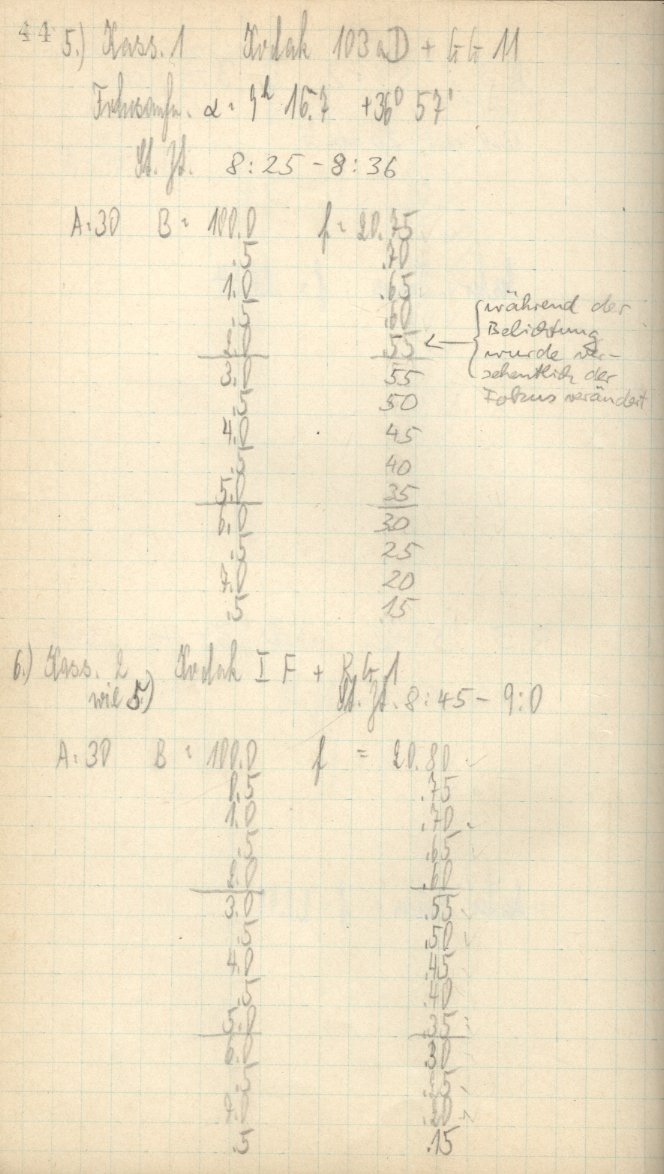 44 5.) Kass. 1 Kodak 103 aD + GG 11
Fokusaufn. α = 9h 16.7 +36° 57'
St. Zt. 8:25 - 8:36
A=30 B = 100.0 f = 20.75
.5 .70
1.0 .65
.5 .60
2.0 .55 ←
3.0 55
.5 50
4.0 45
.5 40
5.0 35
6.0 30
.5 25
7.0 20
.5 15
während der
Belichtung
wurde ver-
sehentlich der
Fokus verändert
6.) Kass. 2 Kodak I F + RG 1
wie 5.) St. Zt. 8:45 - 9:0
A=30 B = 100.0 f = 20.80
0.5 .75
1.0 .70
.5 .65
2.0 .60
3.0 .55
.5 .50
4.0 .45
.5 .40
5.0 .35
6.0 30
.5
7.0 .20
.5 .15